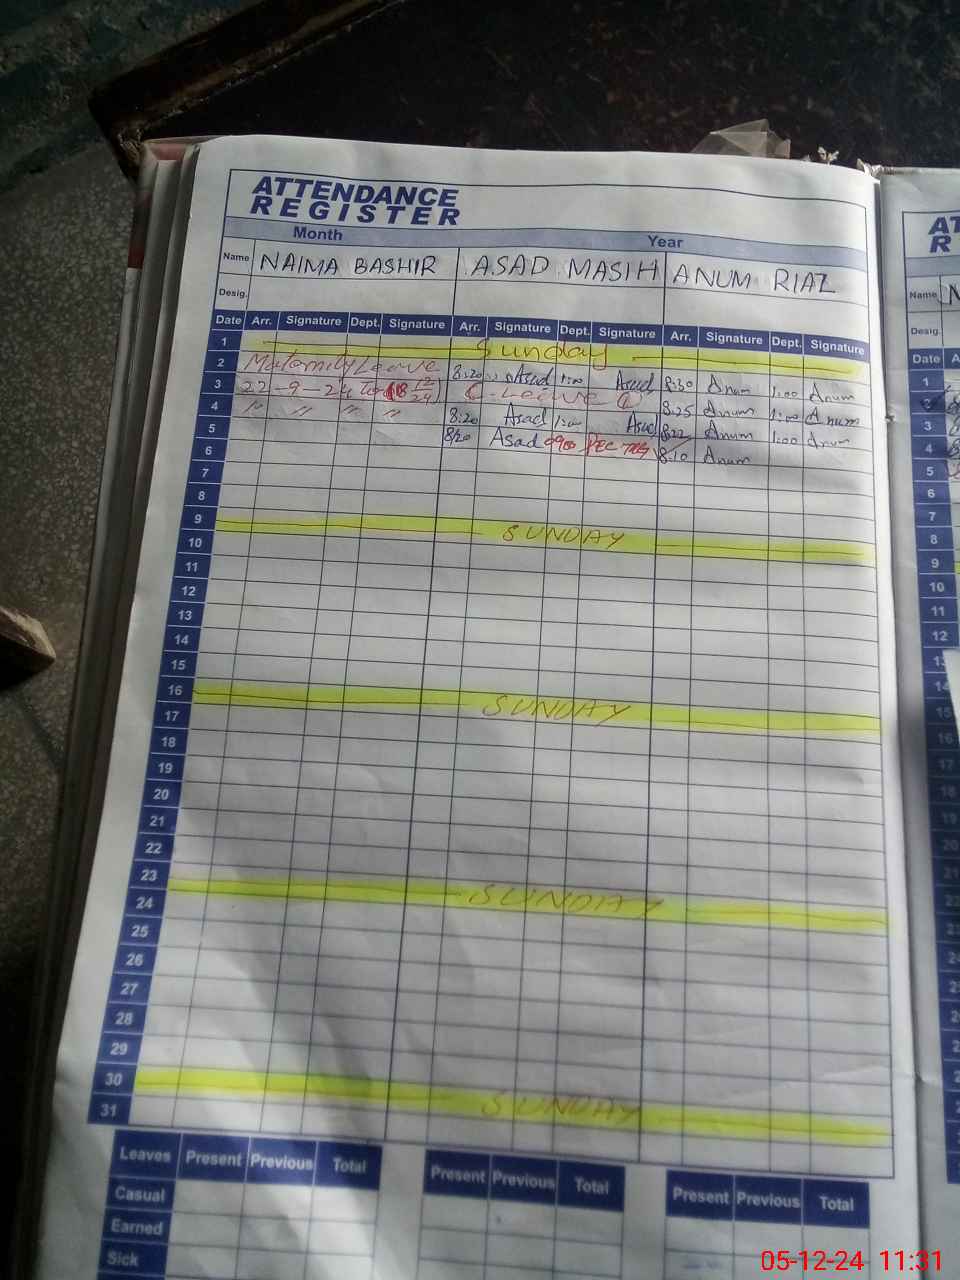 ATTENDANCE
REGISTER
Month Year
Name NAIMA BASHIR ASAD MASIH ANUM RIAZ
Desig.
Date Arr. Signature Dept. Signature Arr. Signature Dept. Signature Arr. Signature Dept. Signature
1 Sunday
2 Maternity Leave 8:20 Asad 1:00 Asad 8:30 Anum 1:00 Anum
3 22-9-24 to C-Leave 1 8:25 Anum 1:00 Anum
4 " " " " 8:20 Asad 1:00 Asad 8:22 Anum 1:00 Anum
5 8:20 Asad 8:10 Anum
6
7
8
9 SUNDAY
10
11
12
13
14
15
16 SUNDAY
17
18
19
20
21
22
23 SUNDAY
24
25
26
27
28
29
30 SUNDAY
31
Leaves Present Previous Total Present Previous Total Present Previous Total
Casual
Earned
Sick
AT
R
Name N
Desig.
Date A
1
3
4
5
6
7
8
9
10
11
12
14
15
16
17
18
19
20
21
22
05-12-24 11:31